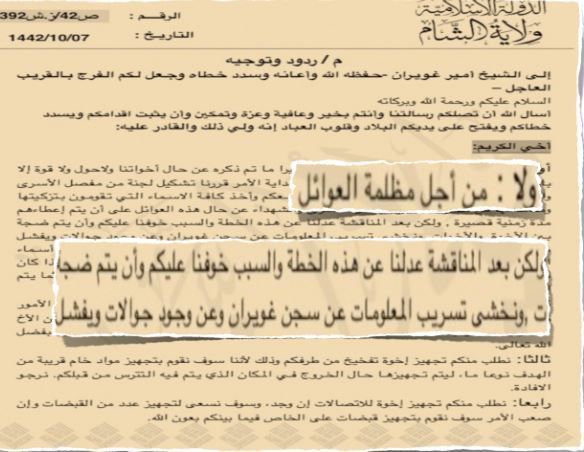 الدولة الإسلامية
ولاية الشام
الرقم : ص42/ز.ش392
التاريخ : 1442/10/07
م / ردود وتوجيه
إلى الشيخ أمير غويران -حفظه الله وأعانه وسدد خطاه وجعل لكم الفرج بالقريب
العاجل –
السلام عليكم ورحمة الله وبركاته
أسأل الله أن تصلكم رسالتنا وأنتم بخير وعافية وعزة وتمكين وأن يثبت اقدامكم ويسدد
خطاكم ويفتح على يديكم البلاد وقلوب العباد إنه ولي ذلك والقادر عليه:
أخي الكريم:
يرا ما تم ذكره عن حال أخواتنا ولاحول ولا قوة إلا
داية الأمر قررنا تشكيل لجنة من مفصل الأسرى
ولا : من أجل مظلمة العوائل
معكم وأخذ كافة الاسماء التي تقومون بتزكيتها
لشهداء عن حال هذه العوائل على أن يتم إعطاءهم
مدة زمنية قصيرة , ولكن بعد المناقشة عدلنا عن هذه الخطة والسبب خوفنا عليكم وأن يتم ضجة
ولكن بعد المناقشة عدلنا عن هذه الخطة والسبب خوفنا عليكم وأن يتم ضجة
ت ,ونخشى تسريب المعلومات عن سجن غويران وعن وجود جوالات ويفشل
الله تعالى.
ثالثا: نطلب منكم تجهيز إخوة تفخيخ من طرفكم وذلك لأننا سوف نقوم بتجهيز مواد خام قريبة من
الهدف نوعا ما، ليتم تجهيزها حال الخروج في المكان الذي يتم فيه التترس من قبلكم. نرجو
الافادة.
رابعا: نطلب منكم تجهيز إخوة للاتصالات إن وجد، وسوف نسعى لتجهيز عدد من القبضات وإن
صعب الأمر سوف نقوم بتجهيز قبضات على الخاص فيما بينكم بعون الله.